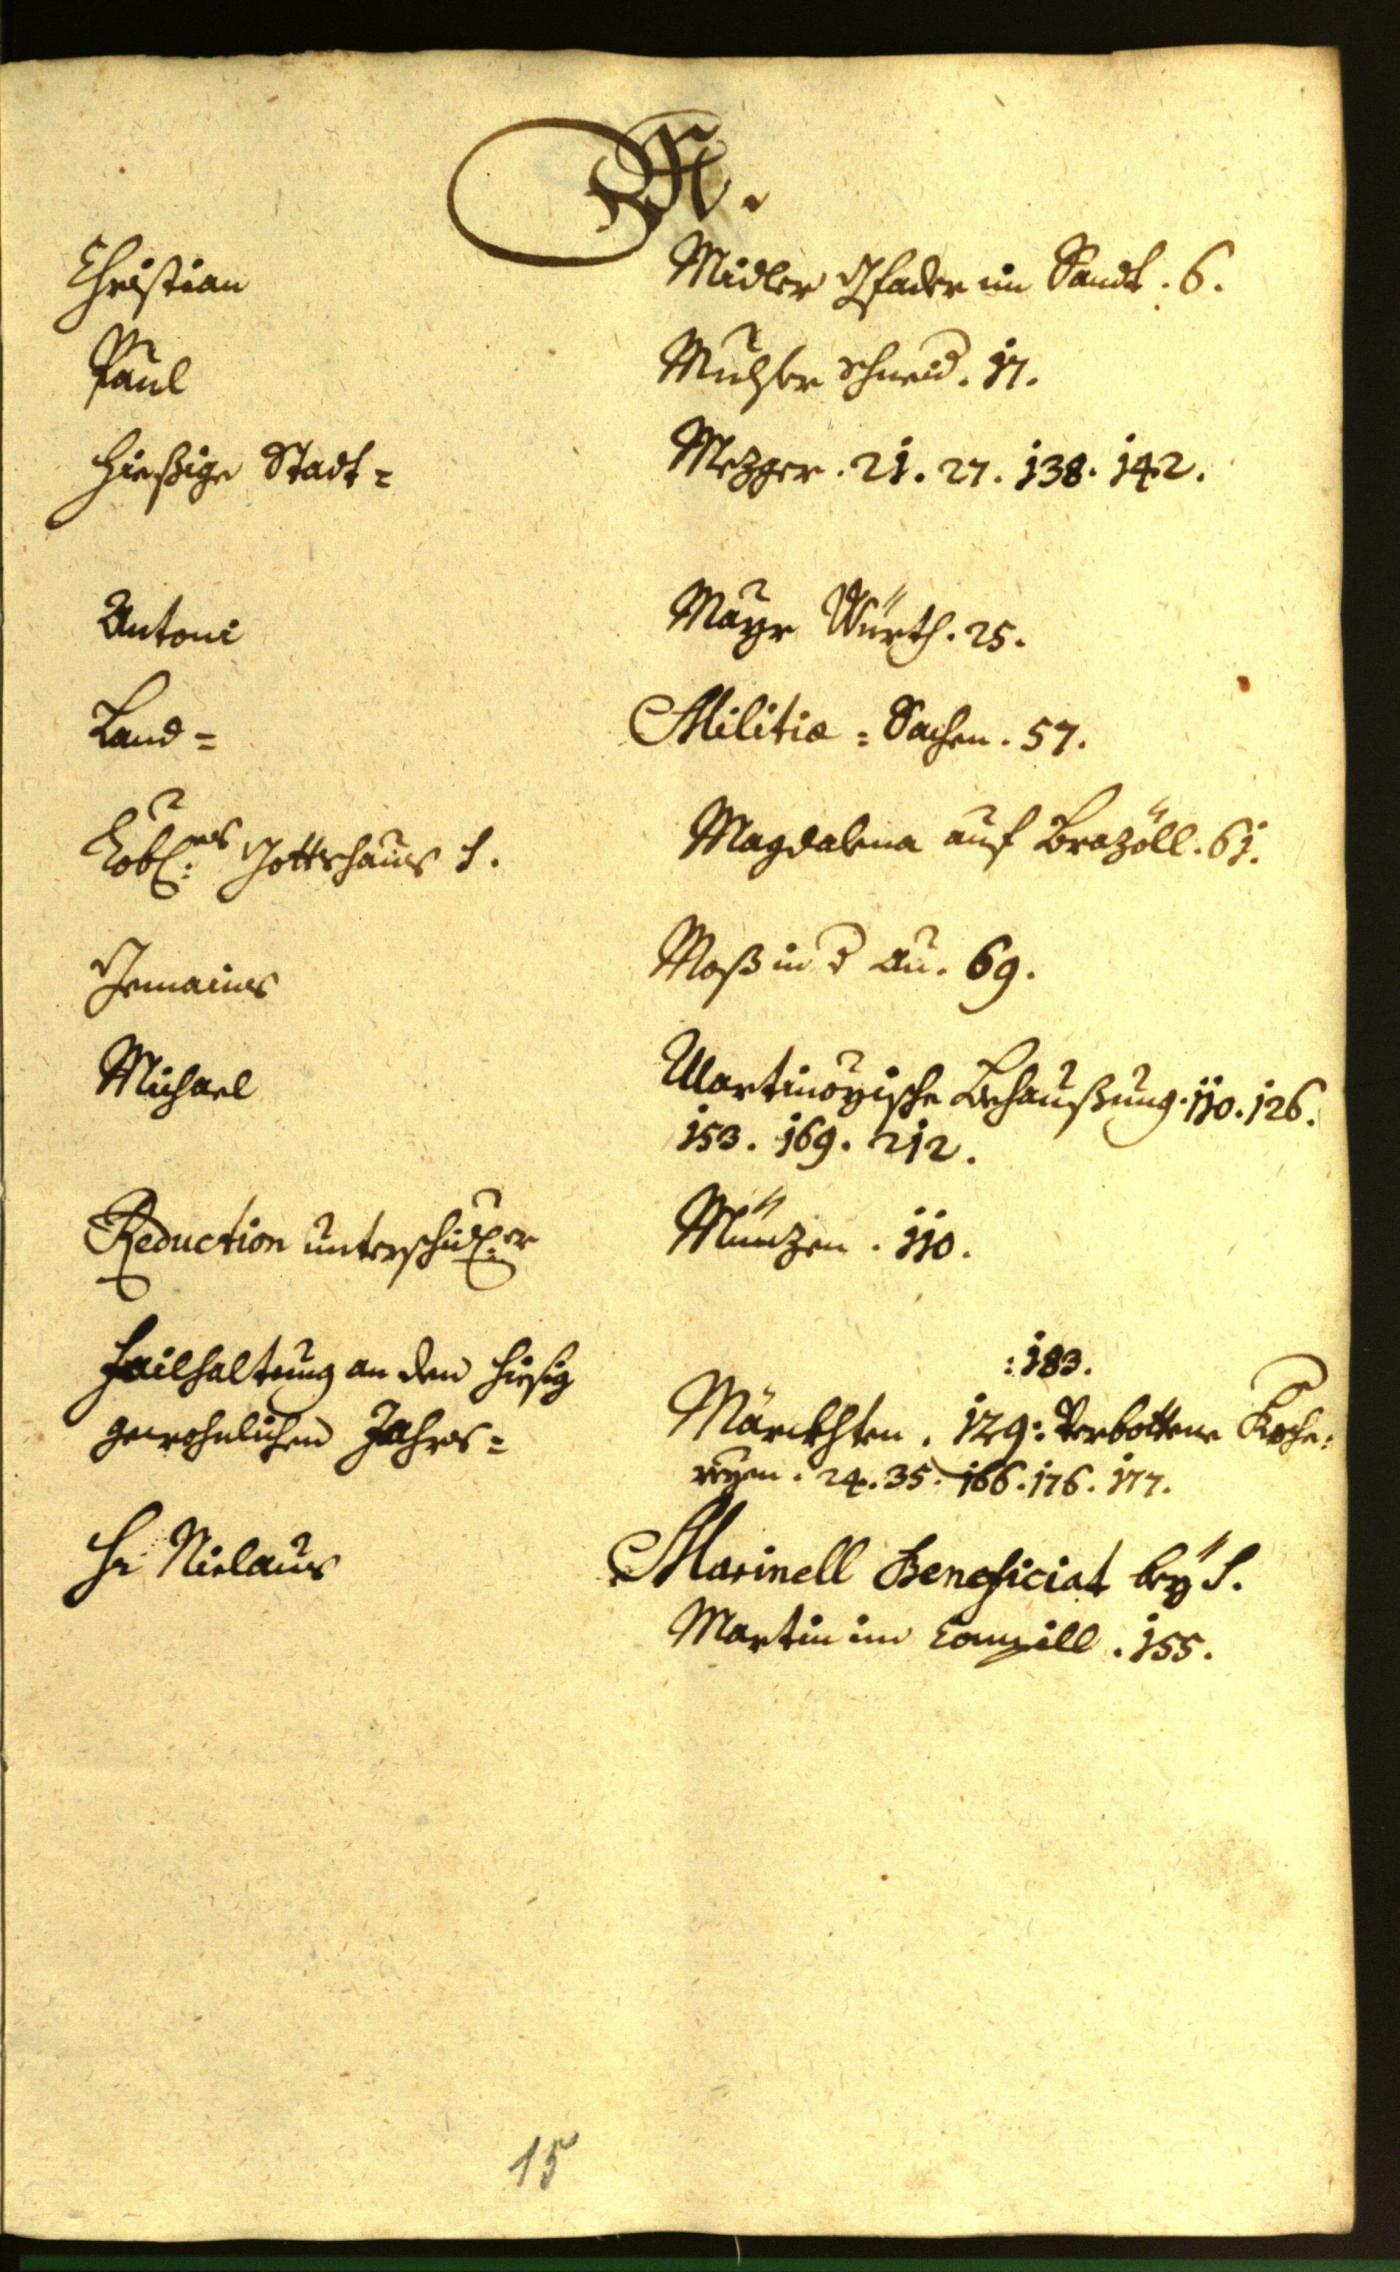 M.
Christian Midler Gsader im Sandt. 6.
Paul Muhser schneid. 17.
hießige Stadt= Mezger. 21. 27. 138. 142.
Antoni Mayr Würth. 25.
Land= Militiae=Sachen. 57.
Lobl:es Gottshaus S. Magdalena auf Brazöll. 61.
Gemaines Moß in d Au. 69.
Michael Martinoyische Behaußung. 110. 126.
153. 169. 212.
Reduction unterschidl:er Münzen. 110.
:183.
Failhaltung an den hiesig
gewohnlichen Jahrs= Märckhten. 129: Verbottene Koche=
reyen. 24. 35. 166. 176. 177.
Hr Niclaus Marinell Beneficiat bey S.
Martin im Campill. 155.
15